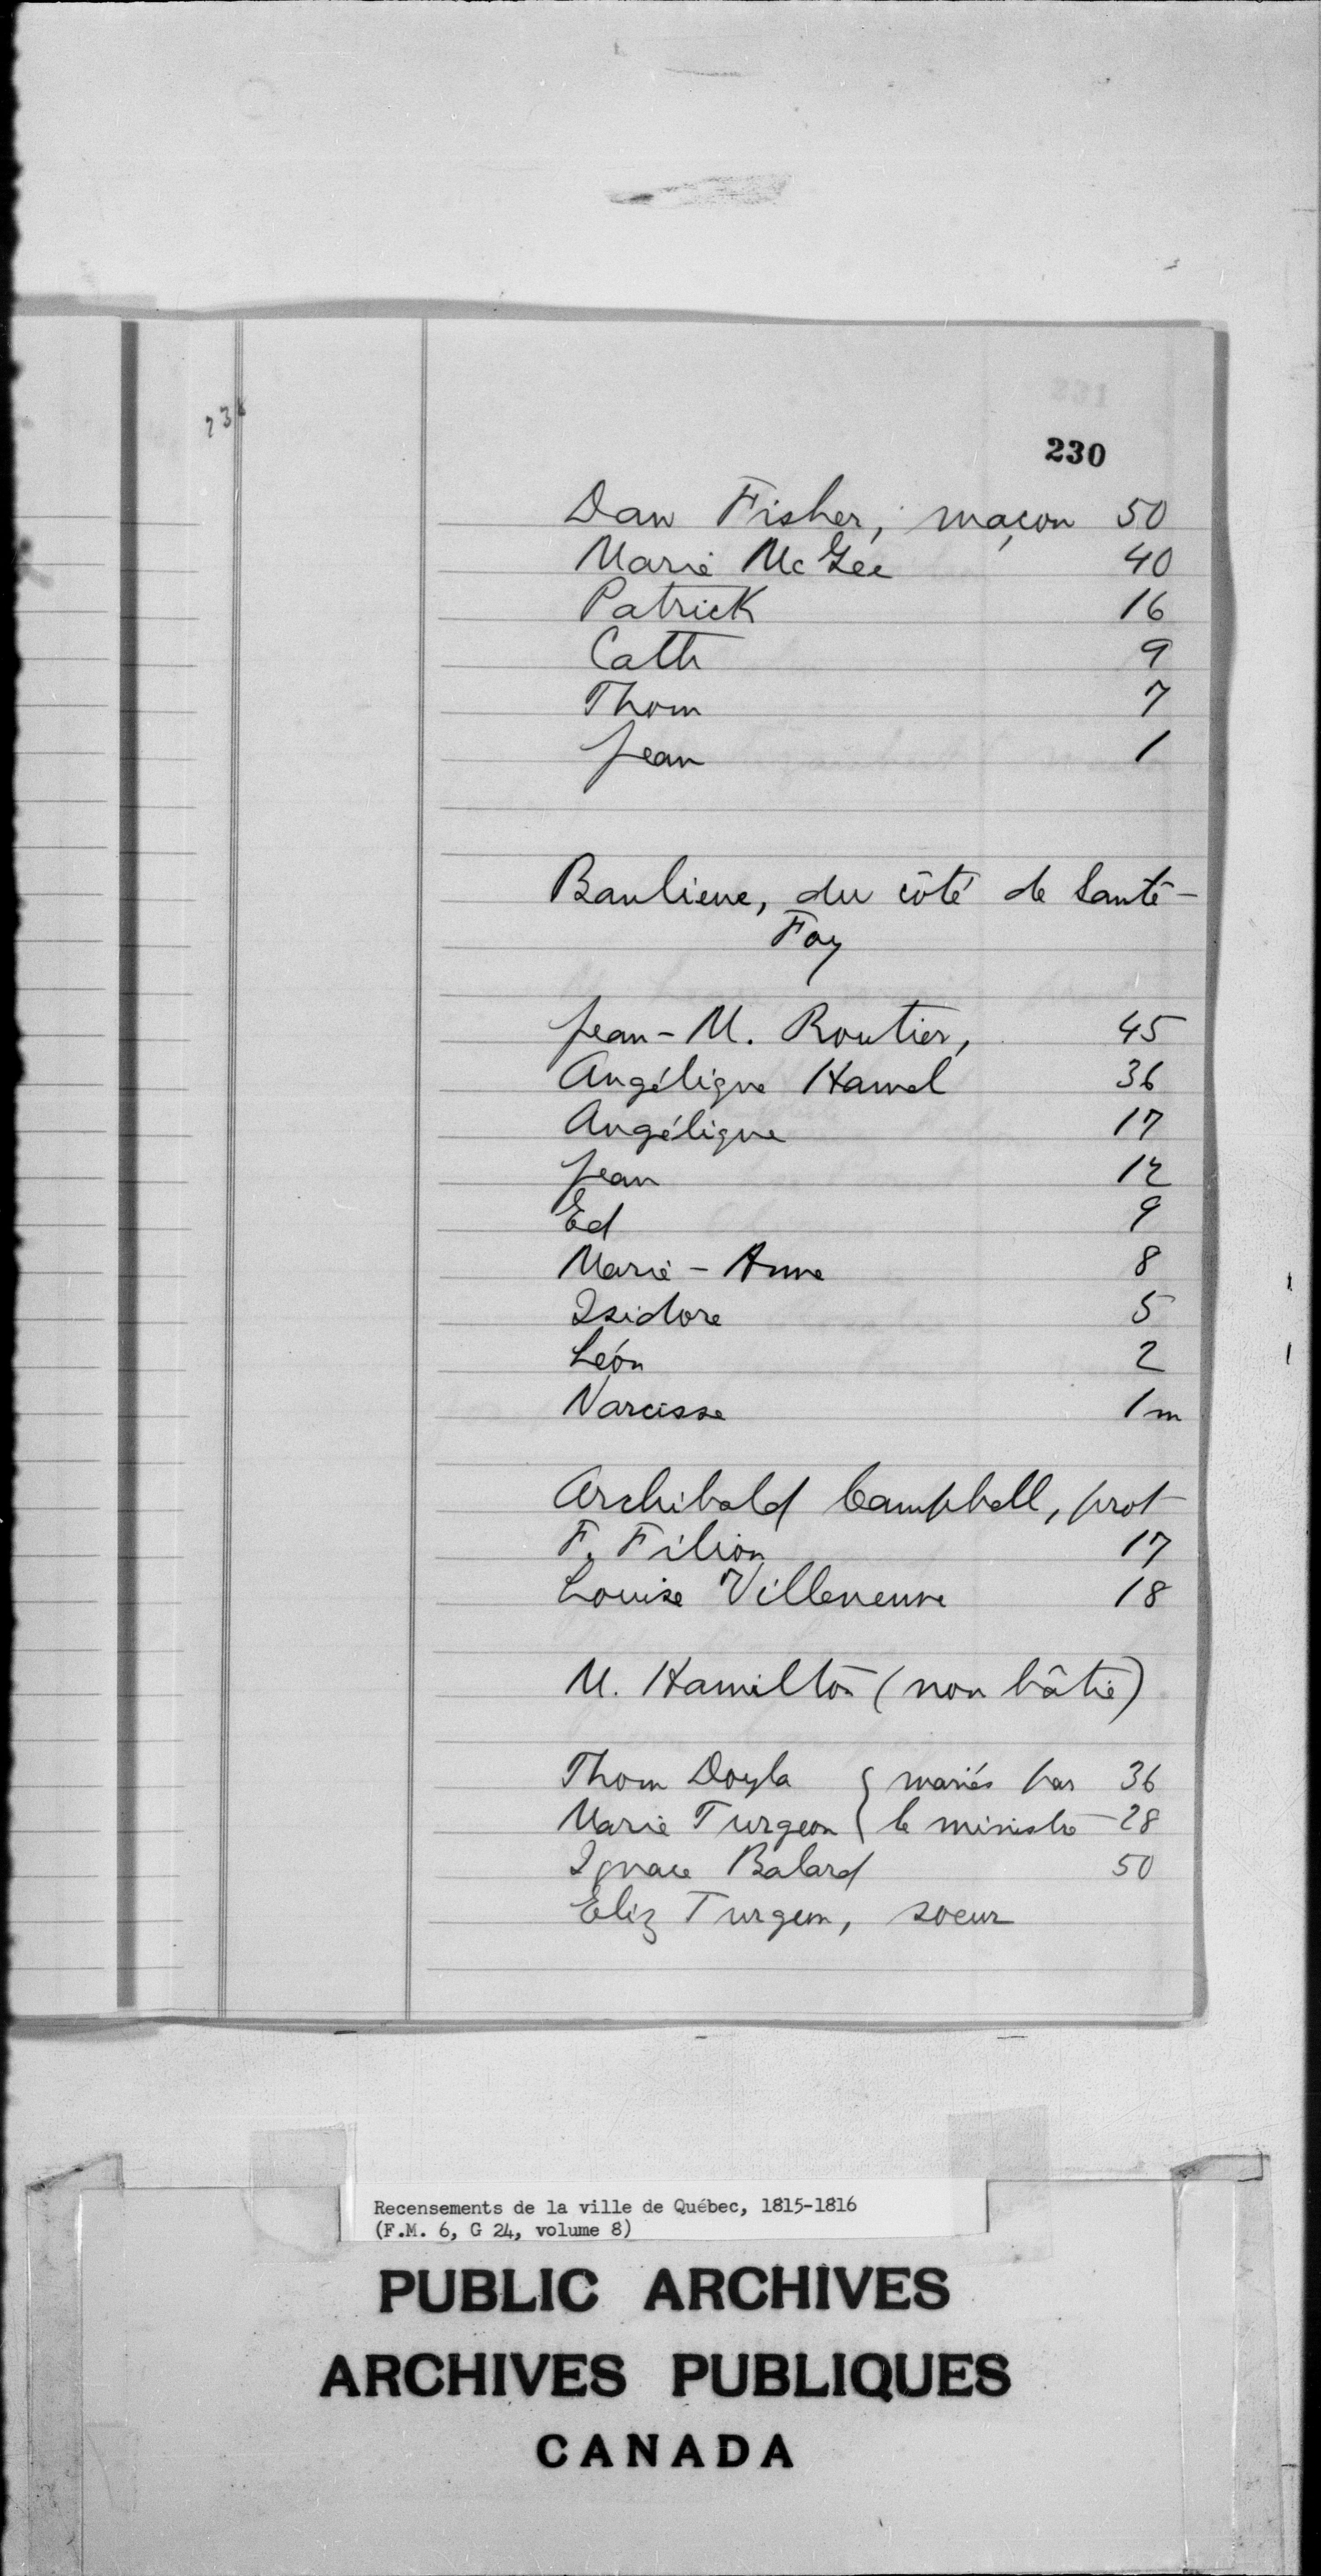 230
Dan Fisher, maçon 50
Marie McGee 40
Patrick 16
Cath 9
Thom 7
Jean 1
Banlieue, du côté de Sainte-
Foy
Jean-M. Routier, 45
Angélique Hamel 36
Angélique 17
Jean 12
Ed 9
Marie-Anne 8
Isidore 5
Léon 2
Narcisse 1m
Archibald Campbell, prot
F. Filion 17
Louise Villeneuve 18
M. Hamilton (non bâtie)
Thom Doyla { mariés par 36
Marie Turgeon { le ministre 28
Ignace Balard 50
Eliz Turgeon, soeur
Recensements de la ville de Québec, 1815-1816
(F.M. 6, G 24, volume 8)
PUBLIC ARCHIVES
ARCHIVES PUBLIQUES
CANADA